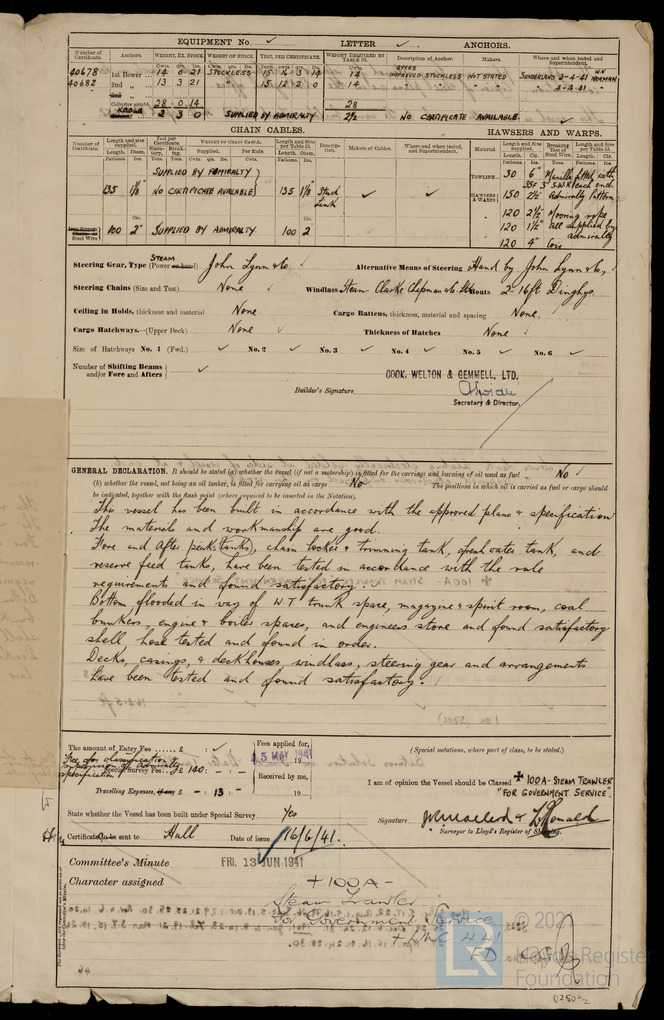 EQUIPMENT No. ✓ LETTER ✓ ANCHORS.
Number of Certificate. Anchors. WEIGHT, EX. STOCK WEIGHT OF STOCK. TEST, PER CERTIFICATE. WEIGHT REQUIRED BY TABLE Description of Anchor. Makers. Where and when tested and Superintendent.
Cwts. qrs. lbs.
40678 1st Bower 14 0 21 STOCKLESS 15 16 3 14 14 BYERS IMPROVED STOCKLESS NOT STATED SUNDERLAND 2-4-41 W.Y NORMAN
40682 2nd " 13 3 21 " 15 12 2 0 14 " " " 4-4-41 "
Collective weight 28 0 14 28
KEDGE 2 3 0 SUPPLIED BY ADMIRALTY 2½ NO CERTIFICATE AVAILABLE.
CHAIN CABLES. HAWSERS AND WARPS.
Number of Certificate. Length and size supplied. Test per Certificate. WEIGHT OF CHAIN CABLE. Length and size per Table Description. Makers of Cables. Where and when tested, and Superintendent. Material Length and size supplied. Breaking Test of Steel Wire. Length and size per Table
Fathoms. Ins. Tons. Supplied. Per Rule. Fathoms. Ins.
SUPPLIED BY ADMIRALTY
135 1⅛ NO CERTIFICATE AVAILABLE 135 1⅛ Stud Link ✓ ✓
TOWLINE 30 6" Manilla fitted with
35F 3" S.W.R each end.
HAWSERS & WARPS 150 2½" Admiralty Pattern
" 120 2½" Mooring rope
100 2" SUPPLIED BY ADMIRALTY 100 2 " 120 1½" all supplied by admiralty
Steel Wire) 120 4" Coir
Steering Gear, Type (Power STEAM or hand) John Lynn & Co ✓ Alternative Means of Steering Hand by John Lynn & Co,
Steering Chains (Size and Test) None Windlass Steam - Clarke Chapman & Co. Ltd Boats 2 - 16ft Dinghys.
Ceiling in Holds, thickness and material None Cargo Battens, thickness, material and spacing None.
Cargo Hatchways.—(Upper Deck) None Thickness of Hatches None ✓
Size of Hatchways No. 1 (Fwd.) ✓ No. 2 ✓ No. 3 ✓ No. 4 ✓ No. 5 ✓ No. 6 ✓
Number of Shifting Beams and/or Fore and Afters } ✓
COOK, WELTON & GEMMELL, LTD.
Builder's Signature
Secretary & Director.
GENERAL DECLARATION. It should be stated (a) whether the vessel (if not a motorship) is fitted for the carriage and burning of oil used as fuel. No ✓
(b) whether the vessel, not being an oil tanker, is fitted for carrying oil as cargo No The positions in which oil is carried as fuel or cargo should
be indicated, together with the flash point (where required to be inserted in the Notation).
The vessel has been built in accordance with the approved plans & specification
The materials and workmanship are good.
Fore and After peak (tanks), chain locker & trimming tank, fresh water tank, and
reserve feed tanks, have been tested in accordance with the rule
requirements and found satisfactory.
Bottom flooded in way of W T trunk space, magazine & spirit room, coal
bunkers, engine & boiler spaces, and engineers store and found satisfactory
shell, hose tested and found in order.
Decks, casings, & deckhouses, windlass, steering gear and arrangements
have been tested and found satisfactory.
The amount of Entry Fee .. .. £ : ✓ :
Fee for classification supervision & Admiralty specification Survey Fee £ 140: - : -
Travelling Expenses, if any £ - 13 : -
Fees applied for,
15 MAY 1941
Received by me,
19
(Special notations, where part of class, to be stated.)
I am of opinion the Vessel should be Classed ✠ 100A - STEAM TRAWLER
"FOR GOVERNMENT SERVICE".
State whether the Vessel has been built under Special Survey Yes
Signature
Surveyor to Lloyd's Register of Shipping.
Certificate to be sent to Hull Date of issue 16/6/41.
Committee's Minute FRI. 13 JUN 1941
Character assigned + 100A -
Steam Trawler
For Government Service
+ LMC 4.41
FD
© 2021
Lloyd's Register
Foundation
LR